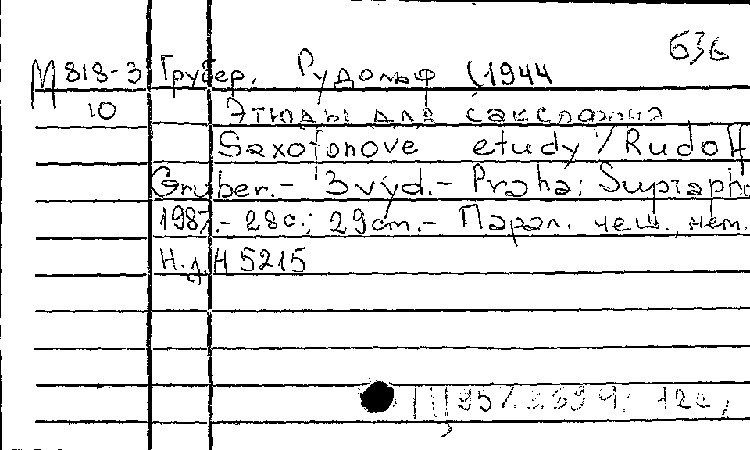 636
М 818-3 Грубер, Рудольф (1944
10 Этюды для саксофона
Saxofonove etudy / Rudolf
Gruber. - 3 vyd. - Praha: Supraph
1987. - 28 с.; 29 cm. - Парал. чеш., нем.
Н.д. H 5215
12 с,